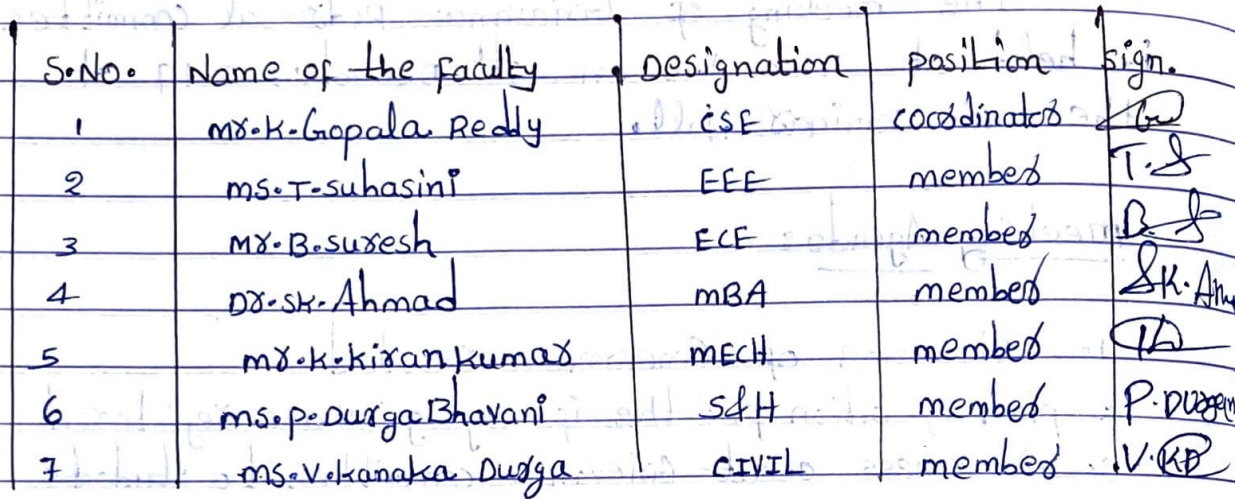 S.No. Name of the Faculty Designation position sign.
1 Mr.K.Gopala Reddy CSE coordinator
2 Ms.T.suhasini EEE member T.S
3 Mr.B.suresh ECE member B.S
4 Dr.SK.Ahmad MBA member SK.
5 Mr.K.Kiran kumar MECH member
6 Ms.P.Durga Bhavani S&H member P.
7 Ms.V.kanaka Durga CIVIL member V.KD